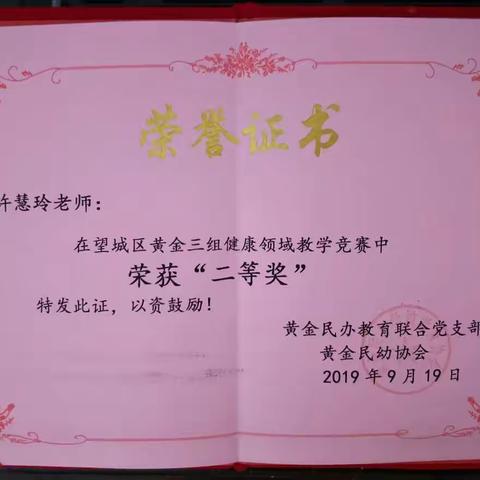 荣誉证书
许慧玲老师：
在望城区黄金三组健康领域教学竞赛中
荣获“二等奖”
特发此证，以资鼓励！
黄金民办教育联合党支部
黄金民幼协会
2019年9月19日